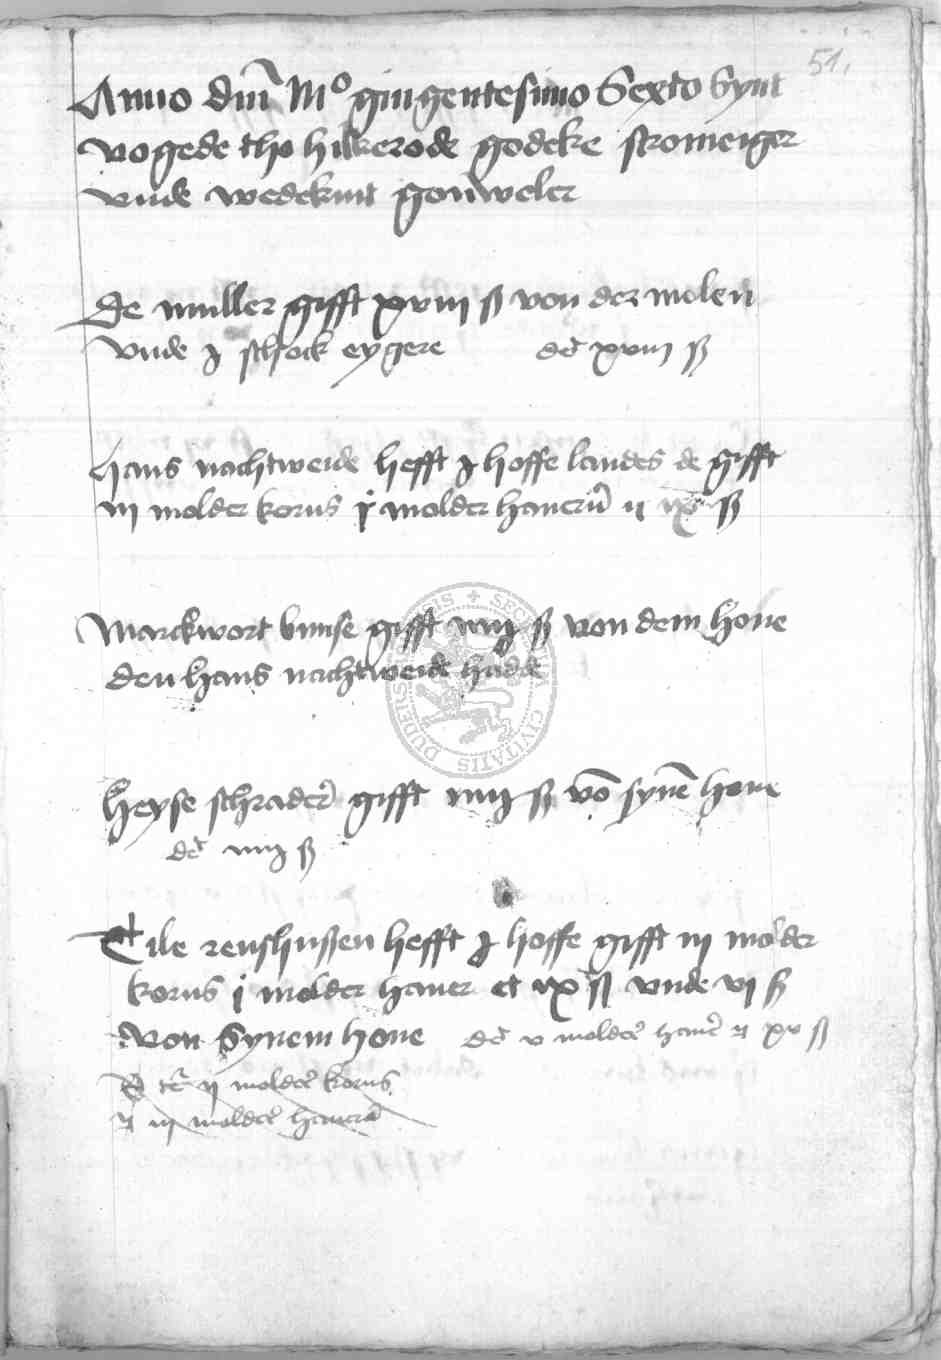 51.
Anno dm̄ Mº quingentesimo Sexto Synt
vogede tho hilkerode godeke stromeiger
vnde wedekint
De muller gifft xviij ß von der molen
vnde j schock eygere dt̄ xviij ß
Hans nachtweide hefft j hoffe landes de gifft
iij molder korns j molder hauern̄ ix ß
Marckwort bunse gifft iiij ß von dem houe
den hans nachtweide hadde
SECRETUM CIVITATIS DUDERS
Heyse schrader gifft iiij ß vō synē houe
dt̄ iiij ß
Tile renshussen hefft j hoffe gifft iij molder
korns j molder hauer et ix ß vnde vj ß
von Synem houe dt̄ v molder hauer xv ß
ij molder korns
iij molder hauern